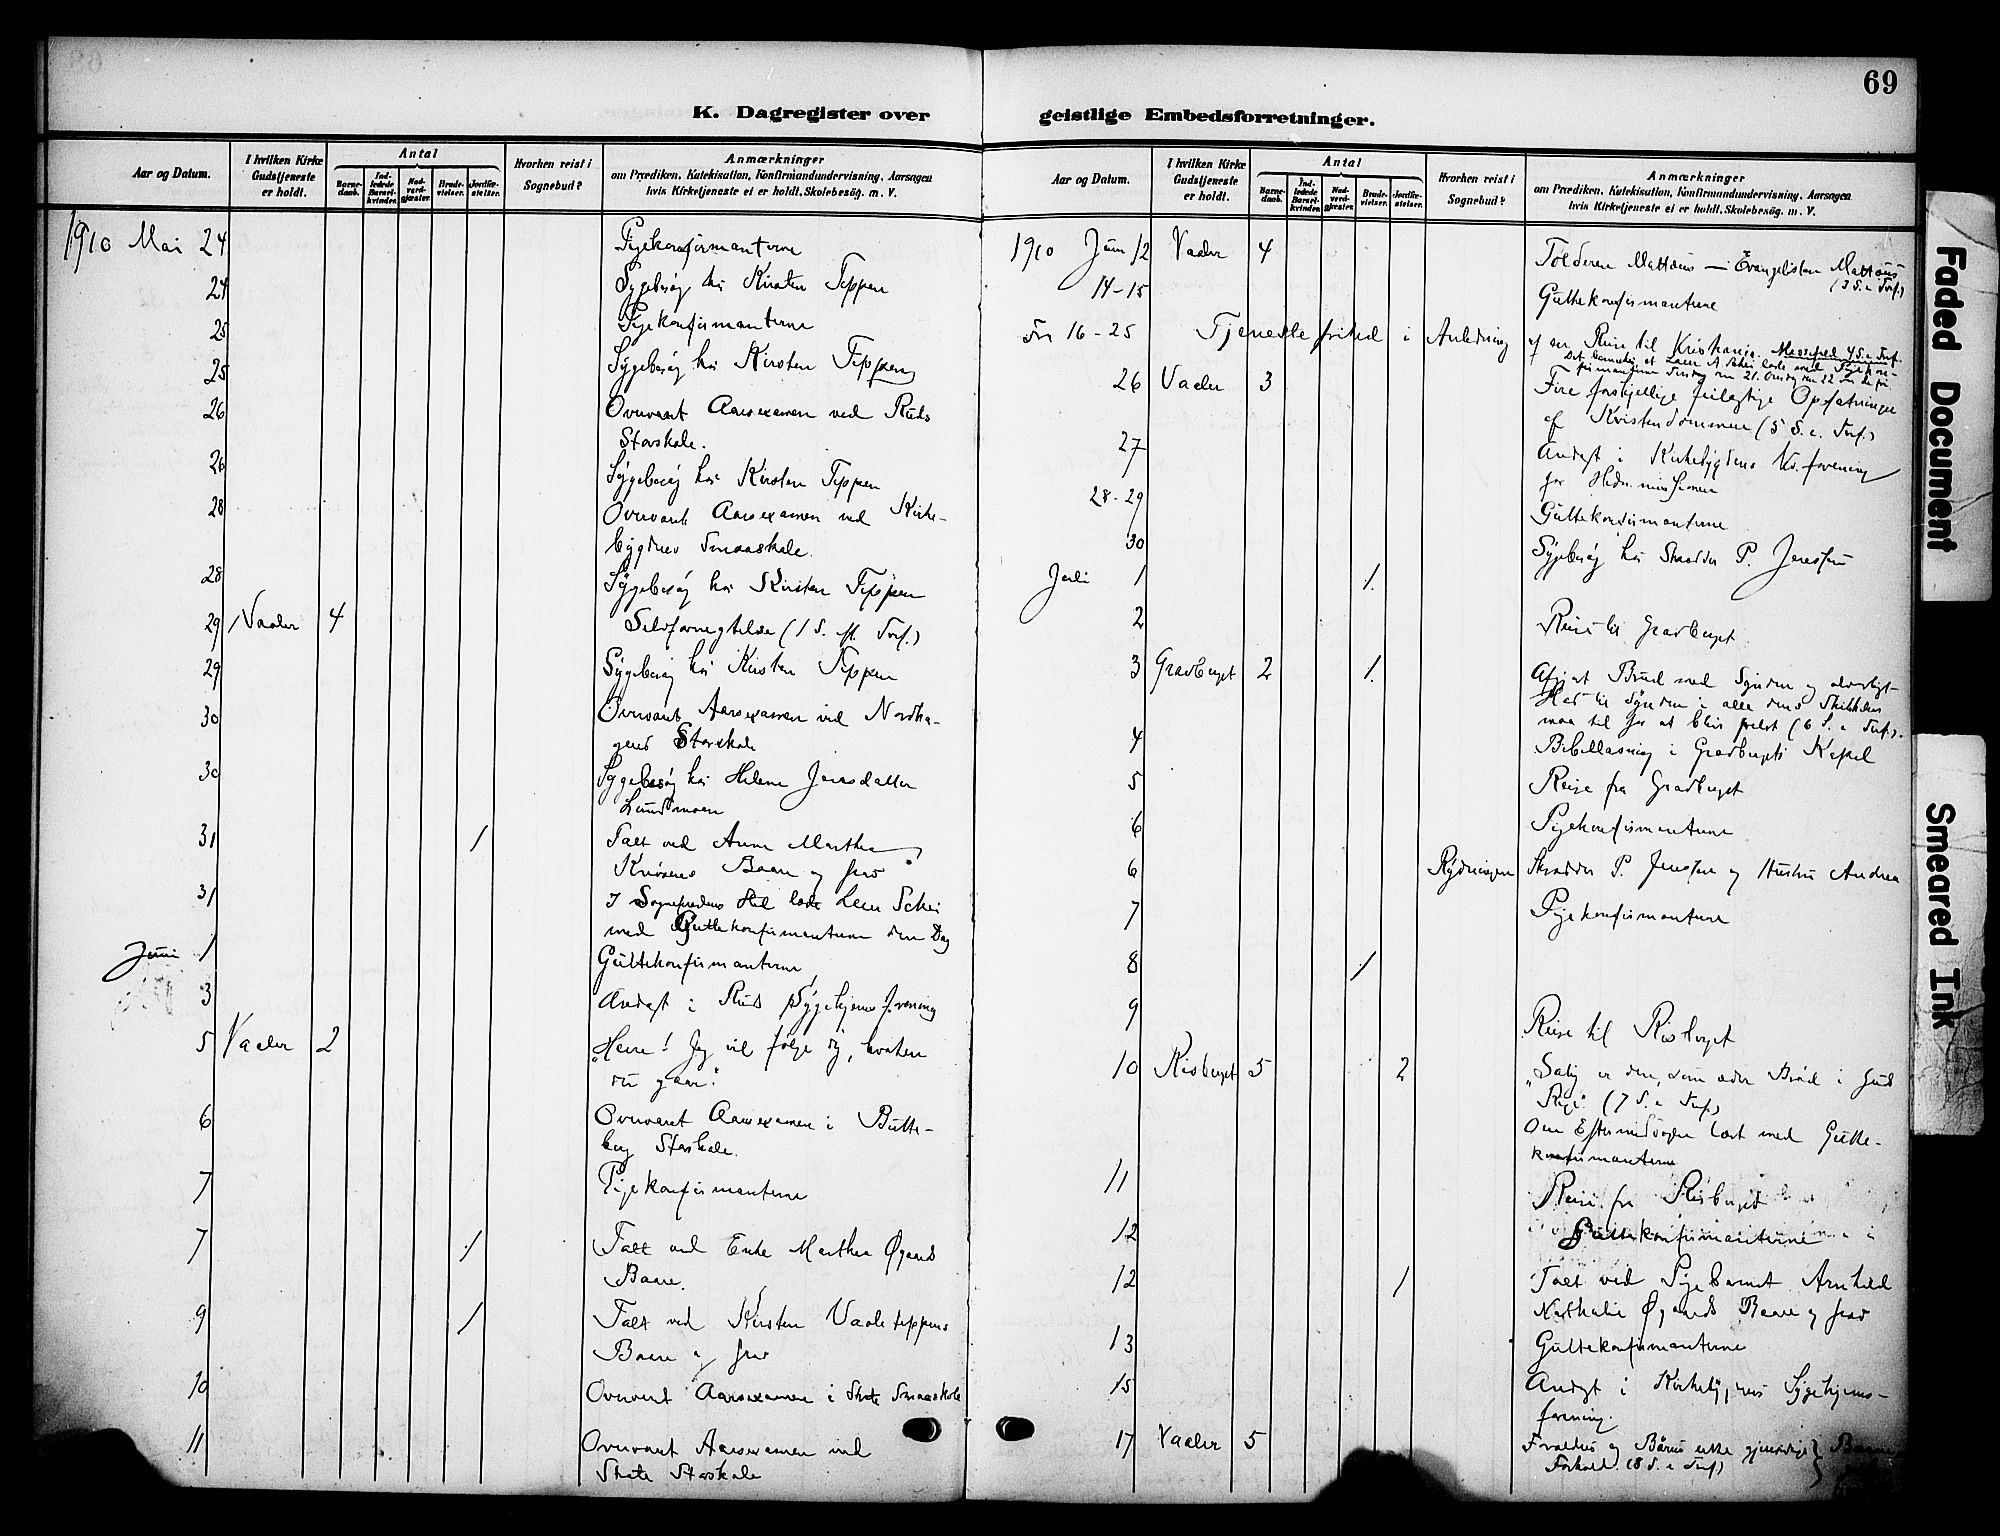 69
K. Dagregister over geistlige Embedsforretninger.
Aar og Datum.
I hvilken Kirke Gudstjeneste er holdt.
Antal
Barnedaab.
Indledede Barselkvinder.
Nadverdgjæster.
Brudevielser.
Jordfæstelser.
Hvorhen reist i Sognebud?
Anmærkninger
om Prædiken, Katekisation, Konfirmandundervisning, Aarsagen
hvis Kirketjeneste ei er holdt, Skolebesøg. m. V.
1910 Mai 24 Pigekonfirmanterne
24 Sygebesøg hos Kirsten Teppen
25 Pigekonfirmanterne
25 Sygebesøg hos Kirsten Teppen
26 Overvaret Aarsexamen ved Ruds
Storskole.
26 Sygebesøg hos Kirsten Teppen
28 Overvaret Aarsexamen ved Kirke-
bygdens Smaaskole.
28 Sygebesøg hos Kirsten Teppen
29 Vaaler 4 Selvfornegtelse (1 S. Tref.)
29 Sygebesøg hos Kirsten Teppen
30 Overvaret Aarsexamen ved Nordha-
gens Storskole
30 Sygebesøg hos Helene Jensdatter
Lundmoen
31 1 Talt ved Anne Marthea
Baare og Grav
31 I Sognepræstens sted læste Lærer Schei
med Guttekonfirmanterne den Dag
Juni 1 Guttekonfirmanterne
3 Andagt i Ruds Sygehjemsforening
5 Vaaler 2 "Herre! Jeg vil følge dig, hvorhen
du gaar."
6 Overvaret Aarsexamen i Butte-
berg Storskole.
7 Pigekonfirmanterne
7 1 Talt ved Enke Marthea Øgaards
Baare.
9 1 Talt ved Kirsten Vaalerteppens
Baare og Grav
10 Overvaret Aarsexamen i Smaaskole
11 Overvaret Aarsexamen ved
Storskole
Aar og Datum.
I hvilken Kirke Gudstjeneste er holdt.
Antal
Barnedaab.
Indledede Barselkvinder.
Nadverdgjæster.
Brudevielser.
Jordfæstelser.
Hvorhen reist i Sognebud?
Anmærkninger
om Prædiken, Katekisation, Konfirmandundervisning, Aarsagen
hvis Kirketjeneste ei er holdt, Skolebesøg. m. V.
1910 Juni 12 Vaaler 4 Tolderen Mattæus — Evangelisten Mattæus
(3 S. e. Tref.)
14-15 Guttekonfirmanterne
Fra 16-25 Tjenestefrihed i Anledning af en Reise til Kristiania. 4 S. e. Tref.
26 Vaaler 3 Fire forskjellige feilagtige Opfatninger
af Kristendommen (5 S. e. Tref.)
27 Andagt i Kirkebygdens Kv.forening
for Hedn.missionen
28-29 Guttekonfirmanterne
30 Sygebesøg hos Skrædder P. Jenssen
Juli 1 1.
2 Reise til Gravberget
3 Gravberget 2 1. Afgjort Brud med Synden og alvorligt
Had til Synden i alle dens Skikkelser
maa til for at blive frelst (6 S. e. Tref.).
4 Bibellæsning i Gravbergets Kapel
5 Reise fra Gravberget
6 Pigekonfirmanterne
6 Rydningen Skrædder P. Jenssen og Hustru Andrea
7 Pigekonfirmanterne
8 1
9 Reise til Risberget
10 Risberget 5 2 "Salig er den, som æder Brød i Guds
Rige." (7 S. e. Tref.)
Om Eftermiddagen læst med Gutte-
konfirmanterne
11 Reise fra Risberget
12 Guttekonfirmanterne
12 1 Talt ved Pigebarnet Arnhild
Nathalie Øgaards Baare og Grav
13 Guttekonfirmanterne
15 Andagt i Kirkebygdens Sygehjems-
forening.
17 Vaaler 5 Forældres og Børns rette gjensidige
Forhold. (8 S. e. Tref.)
Faded Document
Smeared Ink